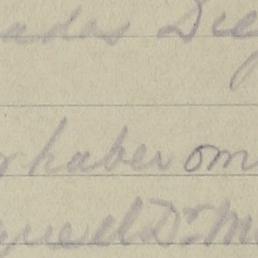 ados Die
r haber om
quel Dr. M